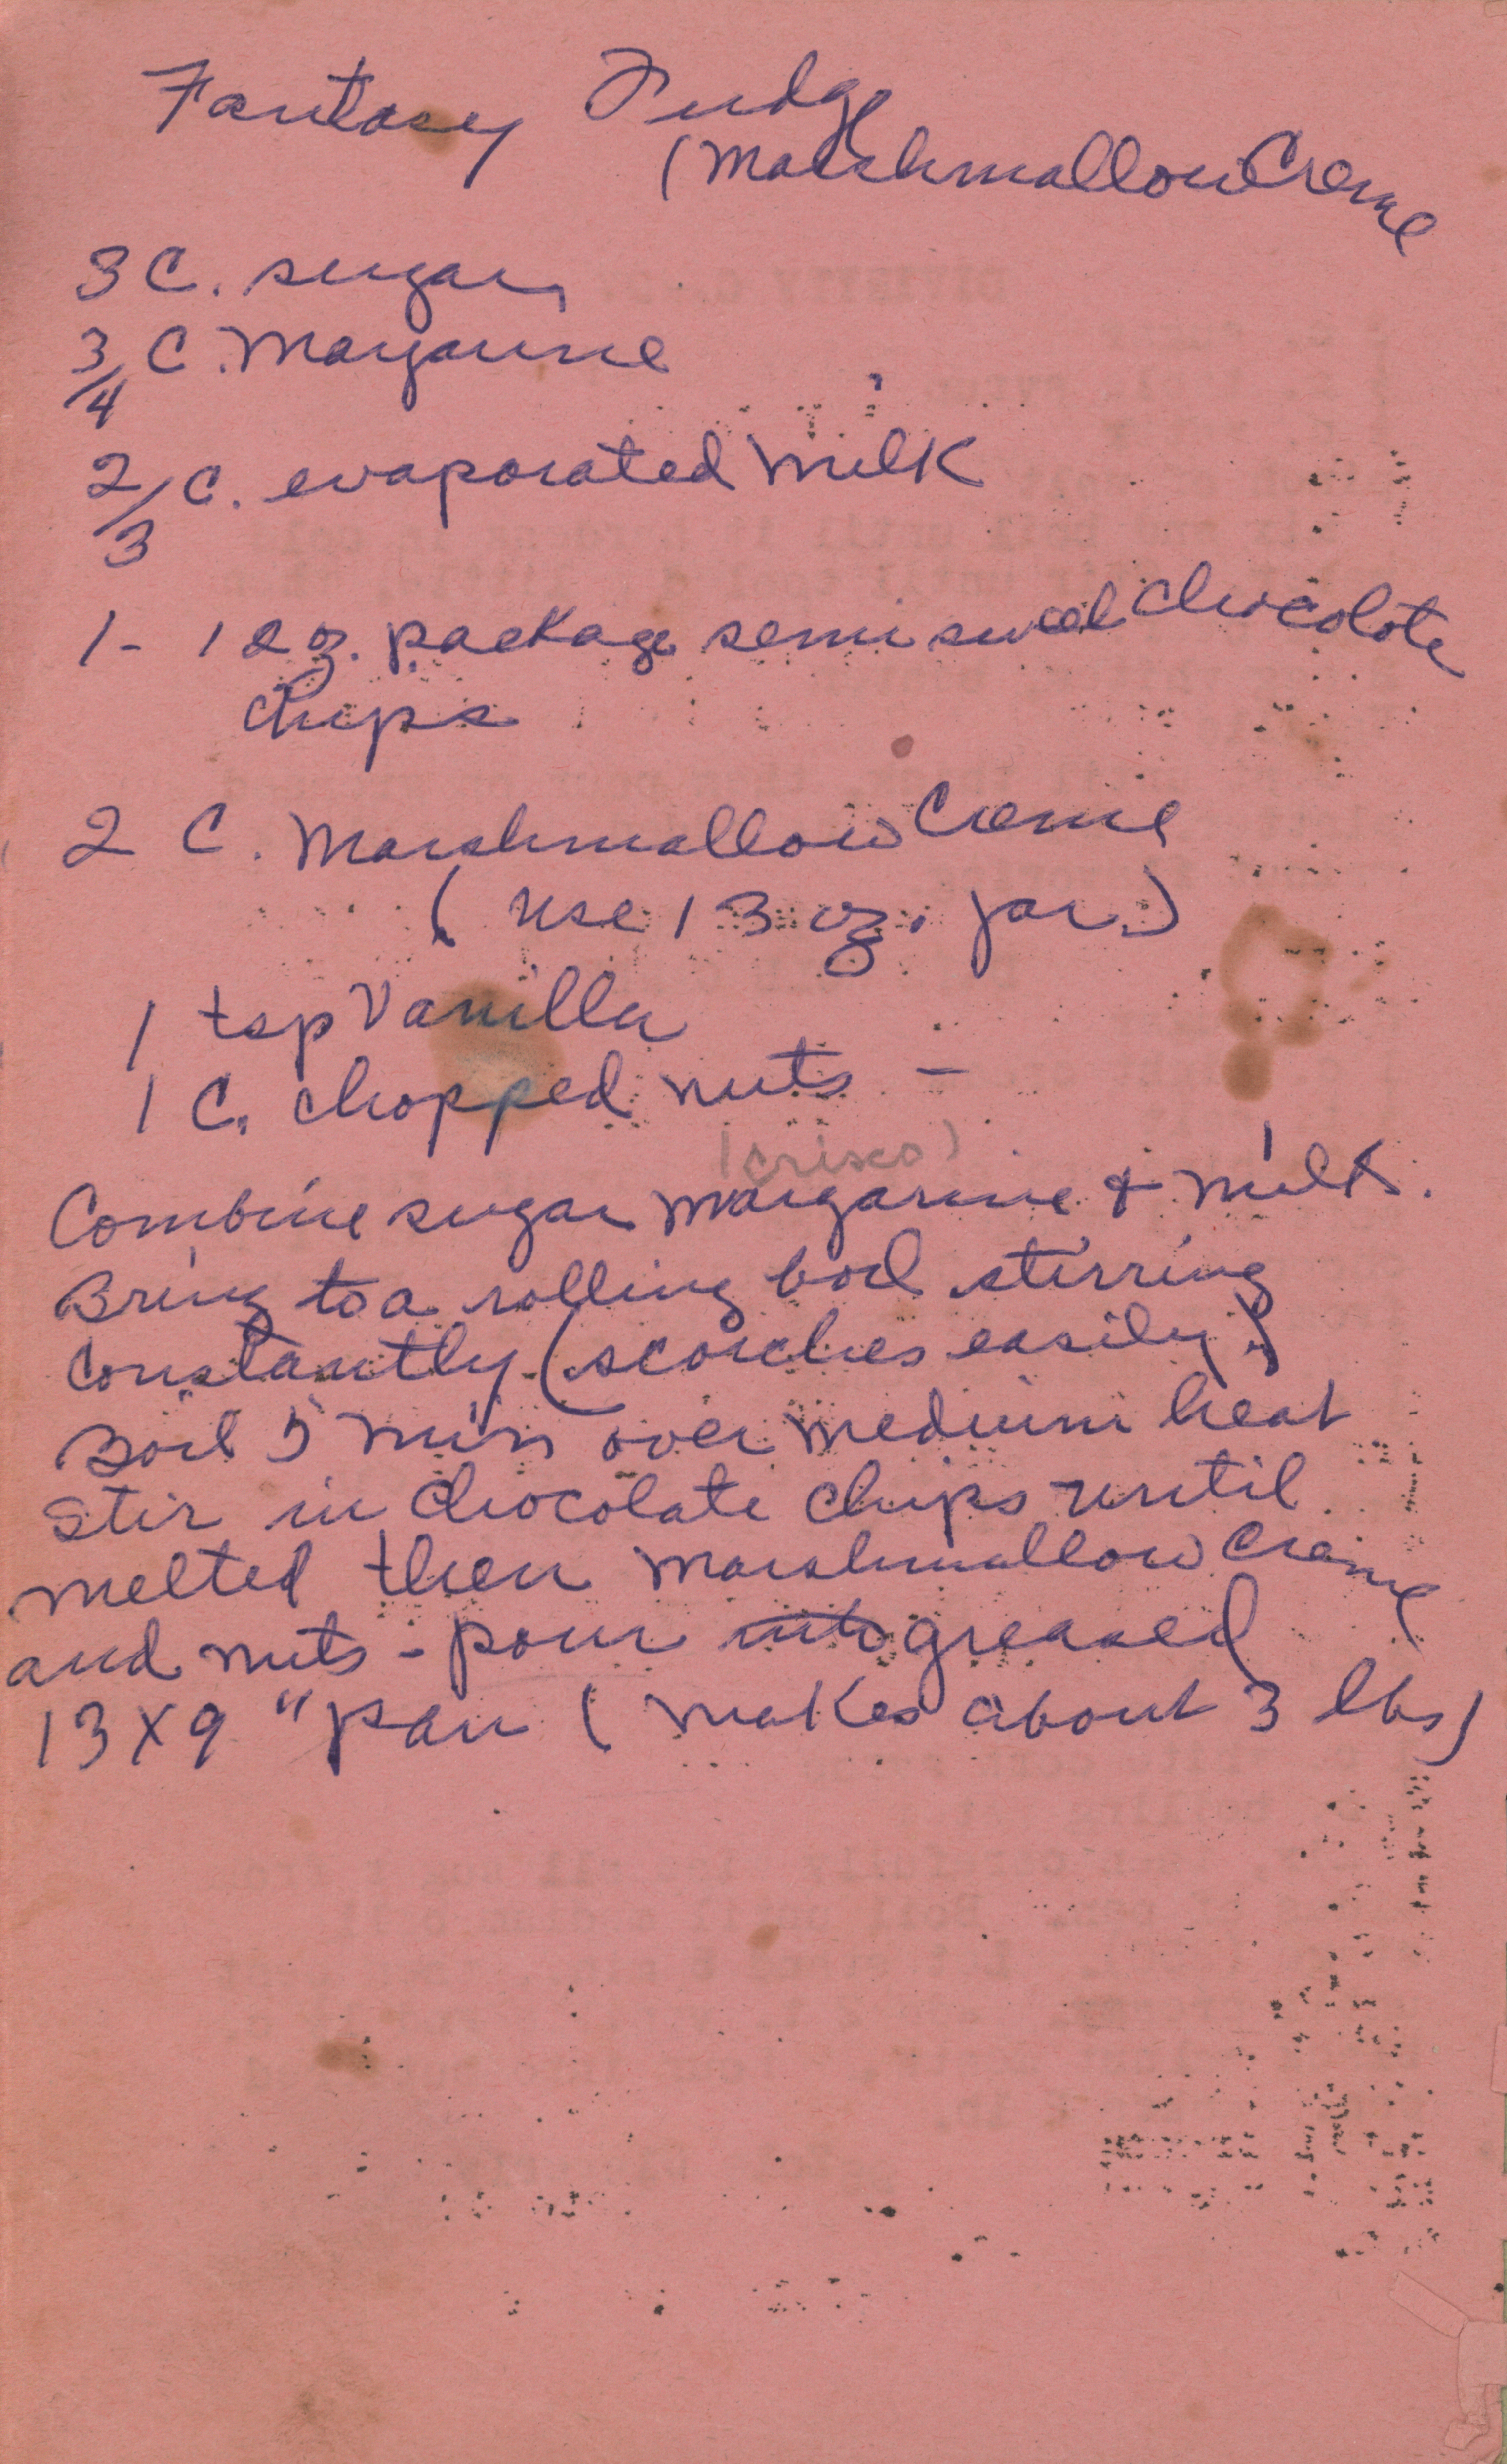 Fantasy Fudge
(Marshmallow Creme
3 C. sugar
3/4 C. Margarine
2/3 C. evaporated Milk
1- 12 oz. package semi sweet chocolate
chips
2 C. Marshmallow Creme
(use 13 oz. jar.)
1 tsp Vanilla
1 C. chopped nuts -
(crisco)
Combine sugar margarine & milk.
Bring to a rolling boil stirring
constantly (scorches easily)
Boil 5 min over medium heat
Stir in chocolate chips until
melted then marshmallow creme
and nuts - pour into greased
13 x 9 " pan (makes about 3 lbs)